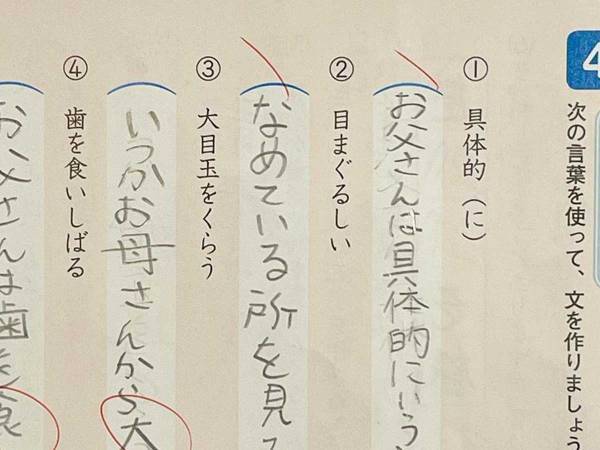 4
次の言葉を使って、文を作りましょう
① 具体的（に）
お父さんは具体的にいう
② 目まぐるしい
なめている所を見
③ 大目玉をくらう
いつかお母さんから大
④ 歯を食いしばる
お父さんは歯を食